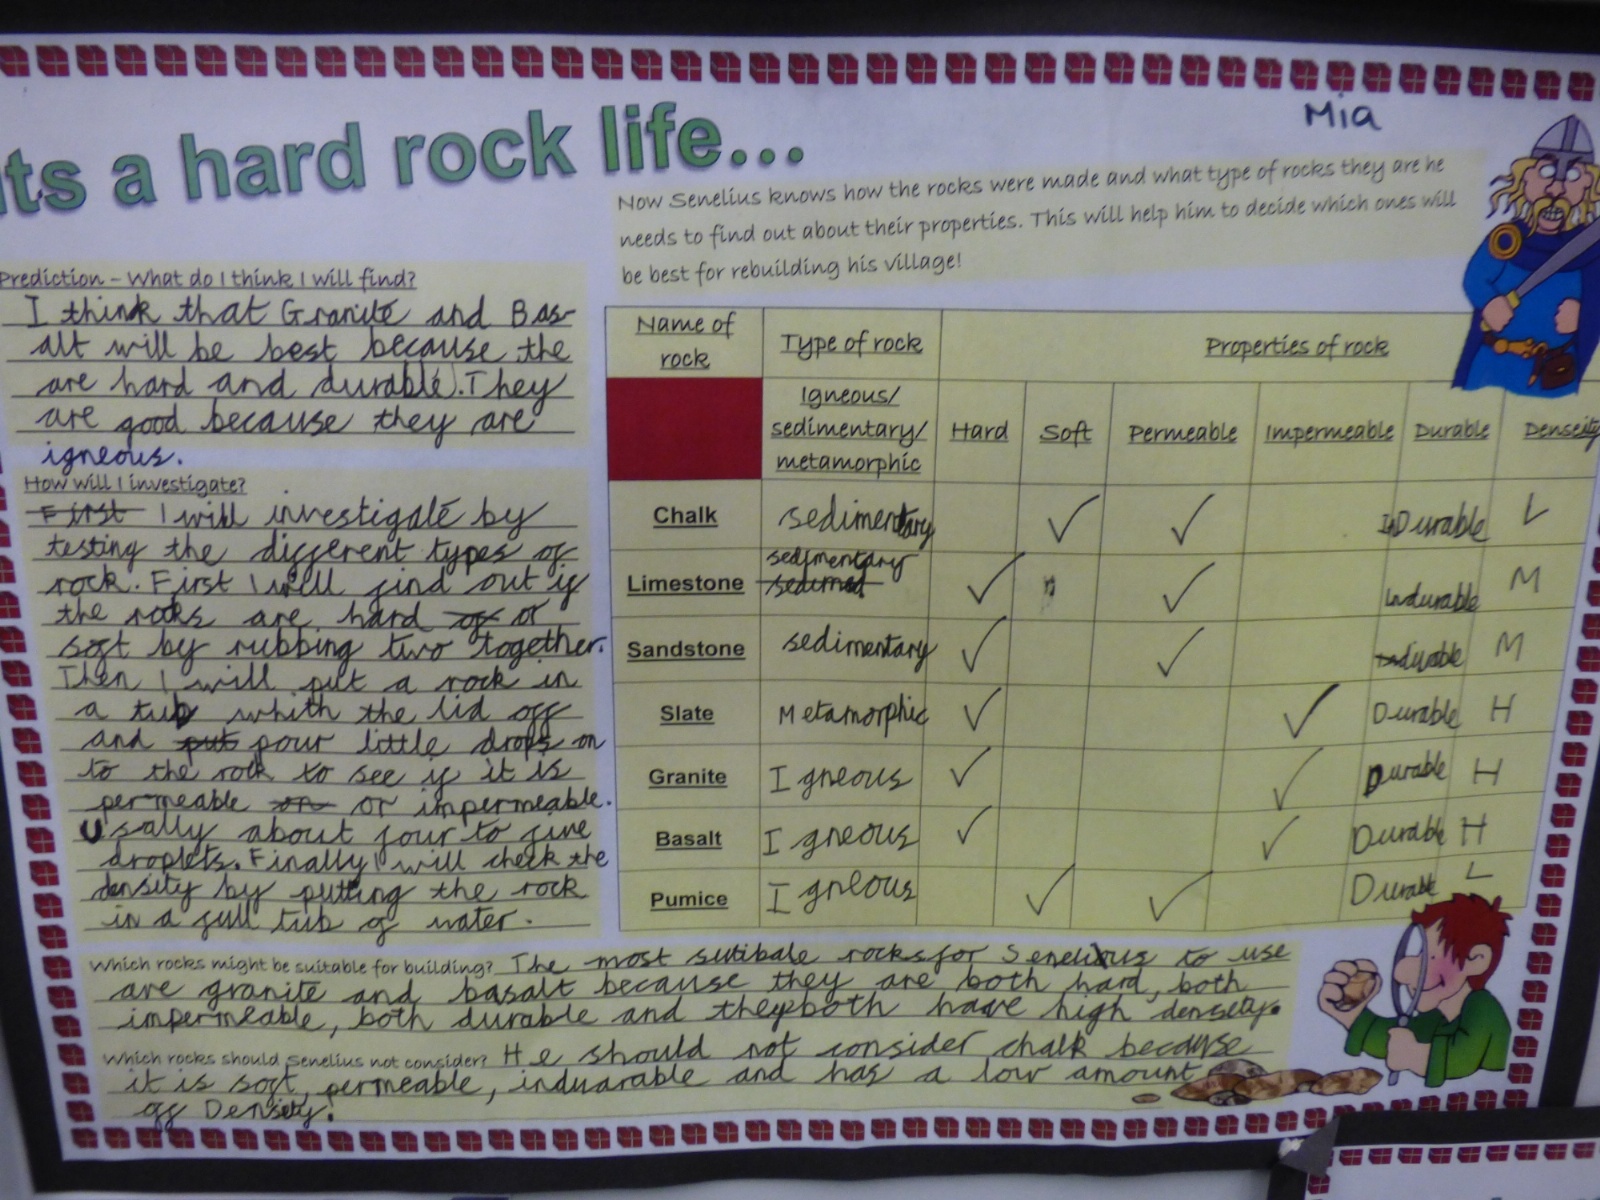 ts a hard rock life...
Mia
Now Senelius knows how the rocks were made and what type of rocks they are he
needs to find out about their properties. This will help him to decide which ones will
be best for rebuilding his village!
Prediction – What do I think I will find?
I think that Granite and Bas-
alt will be best because the
are hard and durable. They
are good because they are
igneous.
How will I investigate?
First I will investigate by
testing the different types of
rock. First I will find out if
the rocks are hard of or
soft by rubbing two together.
Then I will put a rock in
a tub whith the lid off
and put pour little drops on
to the rock to see if it is
permeable on or impermeable.
Usally about four to five
droplets. Finally I will check the
density by putting the rock
in a full tub of water.
Name of rock Type of rock Properties of rock
Igneous/ sedimentary/ metamorphic Hard Soft Permeable Impermeable Durable Denseity
Chalk sedimentary ✓ ✓ InDurable L
Limestone sedimentary ✓ ✓ indurable M
Sandstone sedimentary ✓ ✓ M
Slate Metamorphic ✓ ✓ Durable H
Granite Igneous ✓ ✓ Durable H
Basalt Igneous ✓ ✓ Durable H
Pumice Igneous ✓ ✓ Durable L
Which rocks might be suitable for building? The most sutibale rocks for to use
are granite and basalt because they are both hard, both
impermeable, both durable and they both have high density.
Which rocks should Senelius not consider? He should not consider chalk because
it is soft, permeable, induarable and has a low amount
of Density.